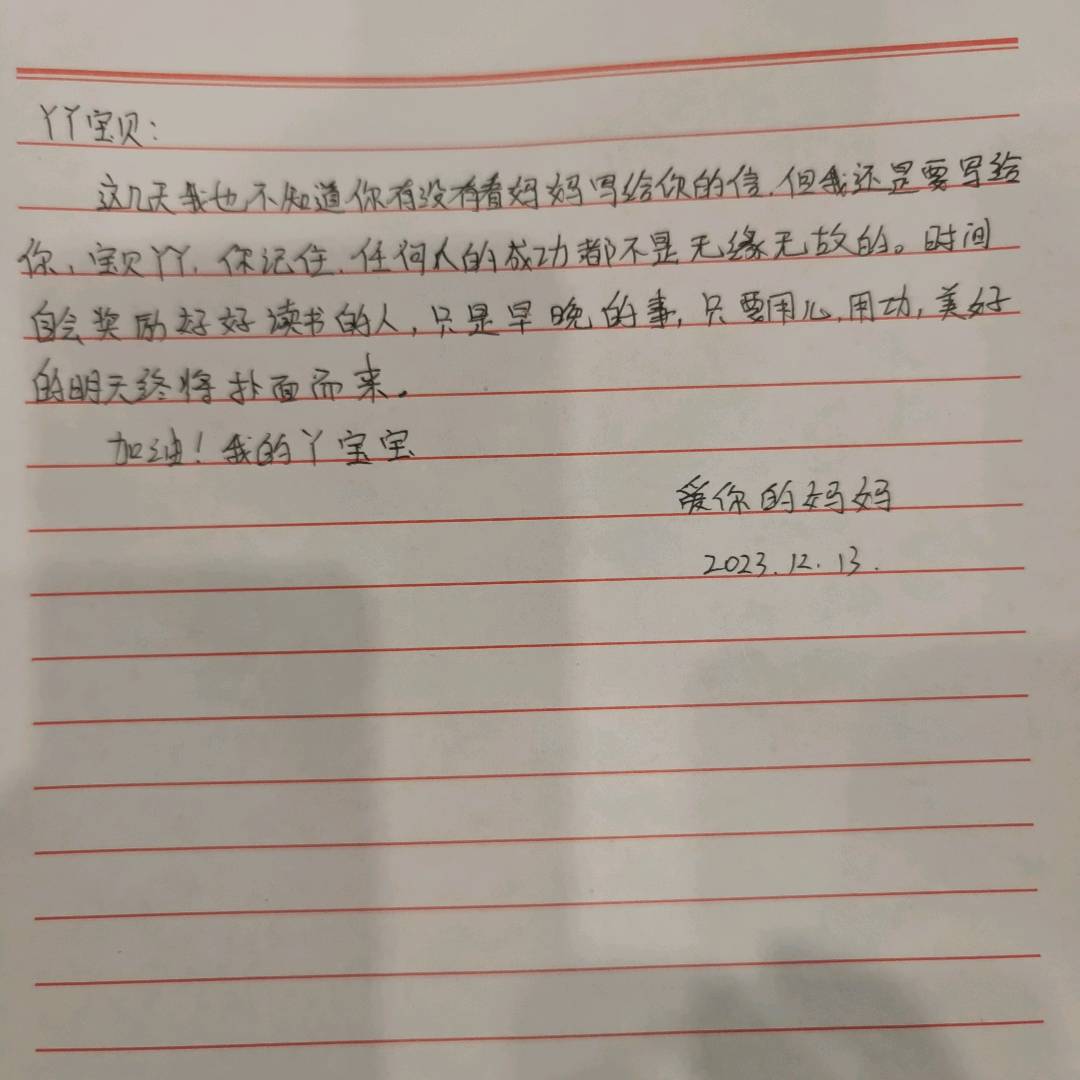 丫丫宝贝:
这几天我也不知道你有没有看妈妈写给你的信,但我还是要写给
你,宝贝丫丫,你记住,任何人的成功都不是无缘无故的。时间
自会奖励好好读书的人,只是早晚的事,只要用心,用功,美好
的明天终将扑面而来。
加油!我的丫宝宝
爱你的妈妈
2023.12.13.